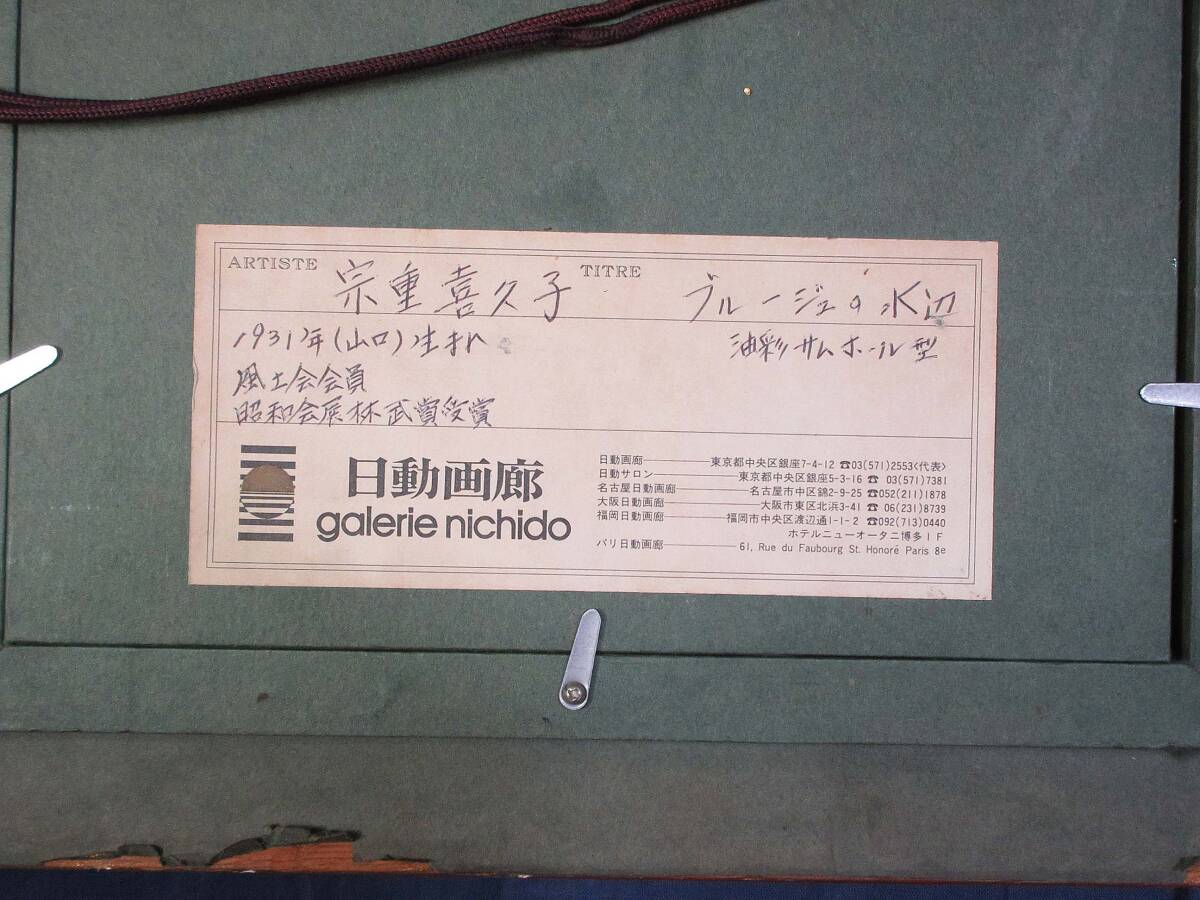 ARTISTE 宗重喜久子 TITRE ブルージュの水辺
1931年(山口)生まれ 油彩サムホール型
風土会会員
昭和会展林武賞受賞
NICHIDO
日動画廊
galerie nichido
日動画廊 東京都中央区銀座7-4-12 ☎03(571)2553〈代表〉
日動サロン 東京都中央区銀座5-3-16 ☎ 03(571)7381
名古屋日動画廊 名古屋市中区錦2-9-25 ☎052(211)1878
大阪日動画廊 大阪市東区北浜3-41 ☎ 06(231)8739
福岡日動画廊 福岡市中央区渡辺通1-1-2 ☎092(713)0440
ホテルニューオータニ博多1F
パリ日動画廊 61, Rue du Faubourg St. Honoré Paris 8e